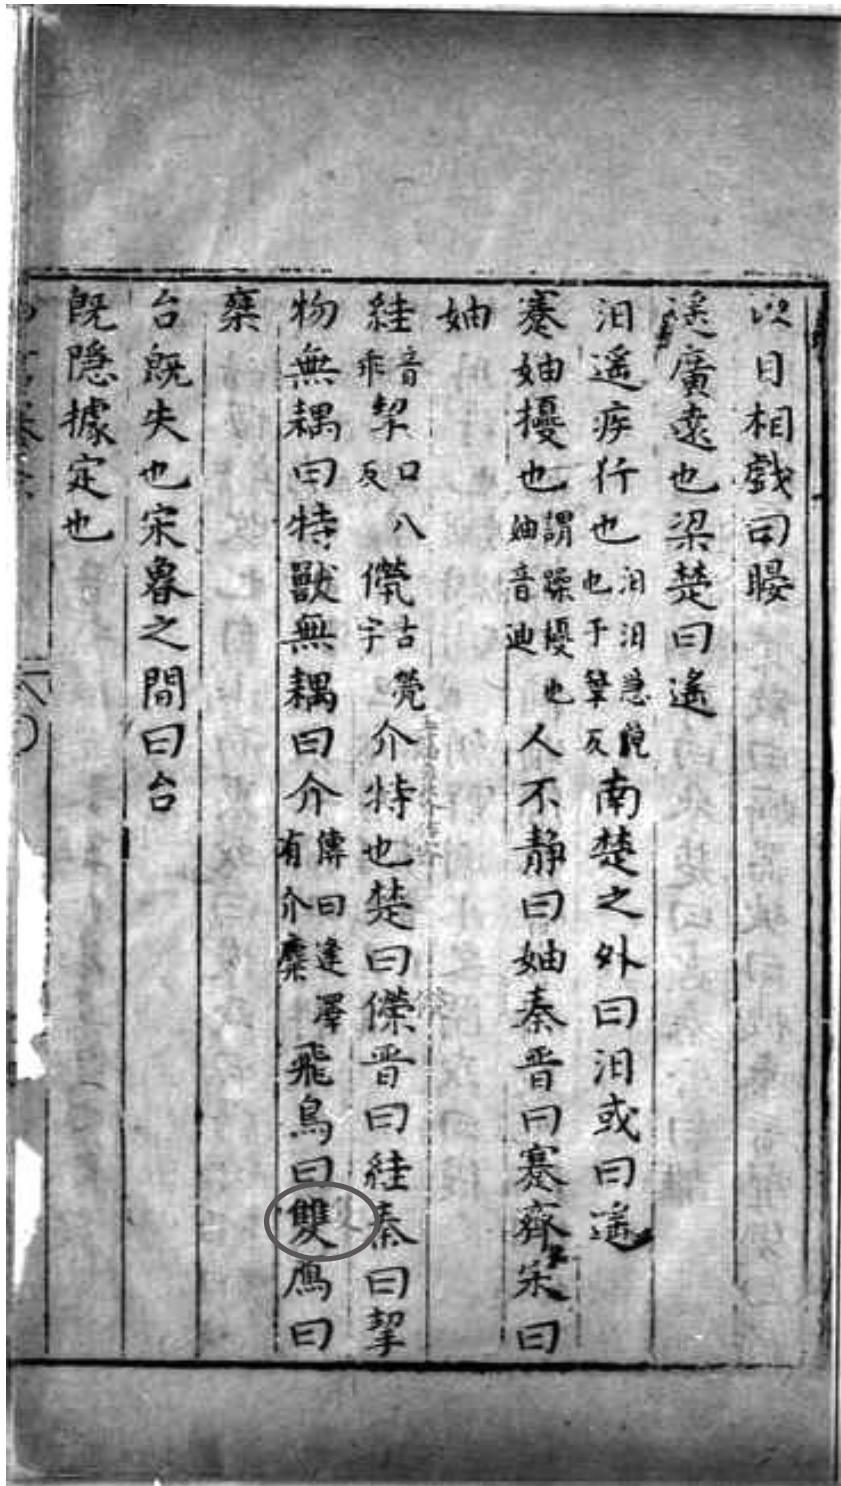 以目相戲曰䁙
遥廣遠也梁楚曰遥
汨遥疾行也汨汨急皃也于筆反南楚之外曰汨或曰遥
蹇妯擾也謂躁擾也妯音迪人不静曰妯秦晋曰蹇齊宋曰
妯
絓音乖挈口八反儝古煢字介特也楚曰儝晋曰絓秦曰挈
物無耦曰特獸無耦曰介傳曰逢澤有介麋飛鳥曰雙鴈曰
椉
台既失也宋魯之間曰台
既隠據定也